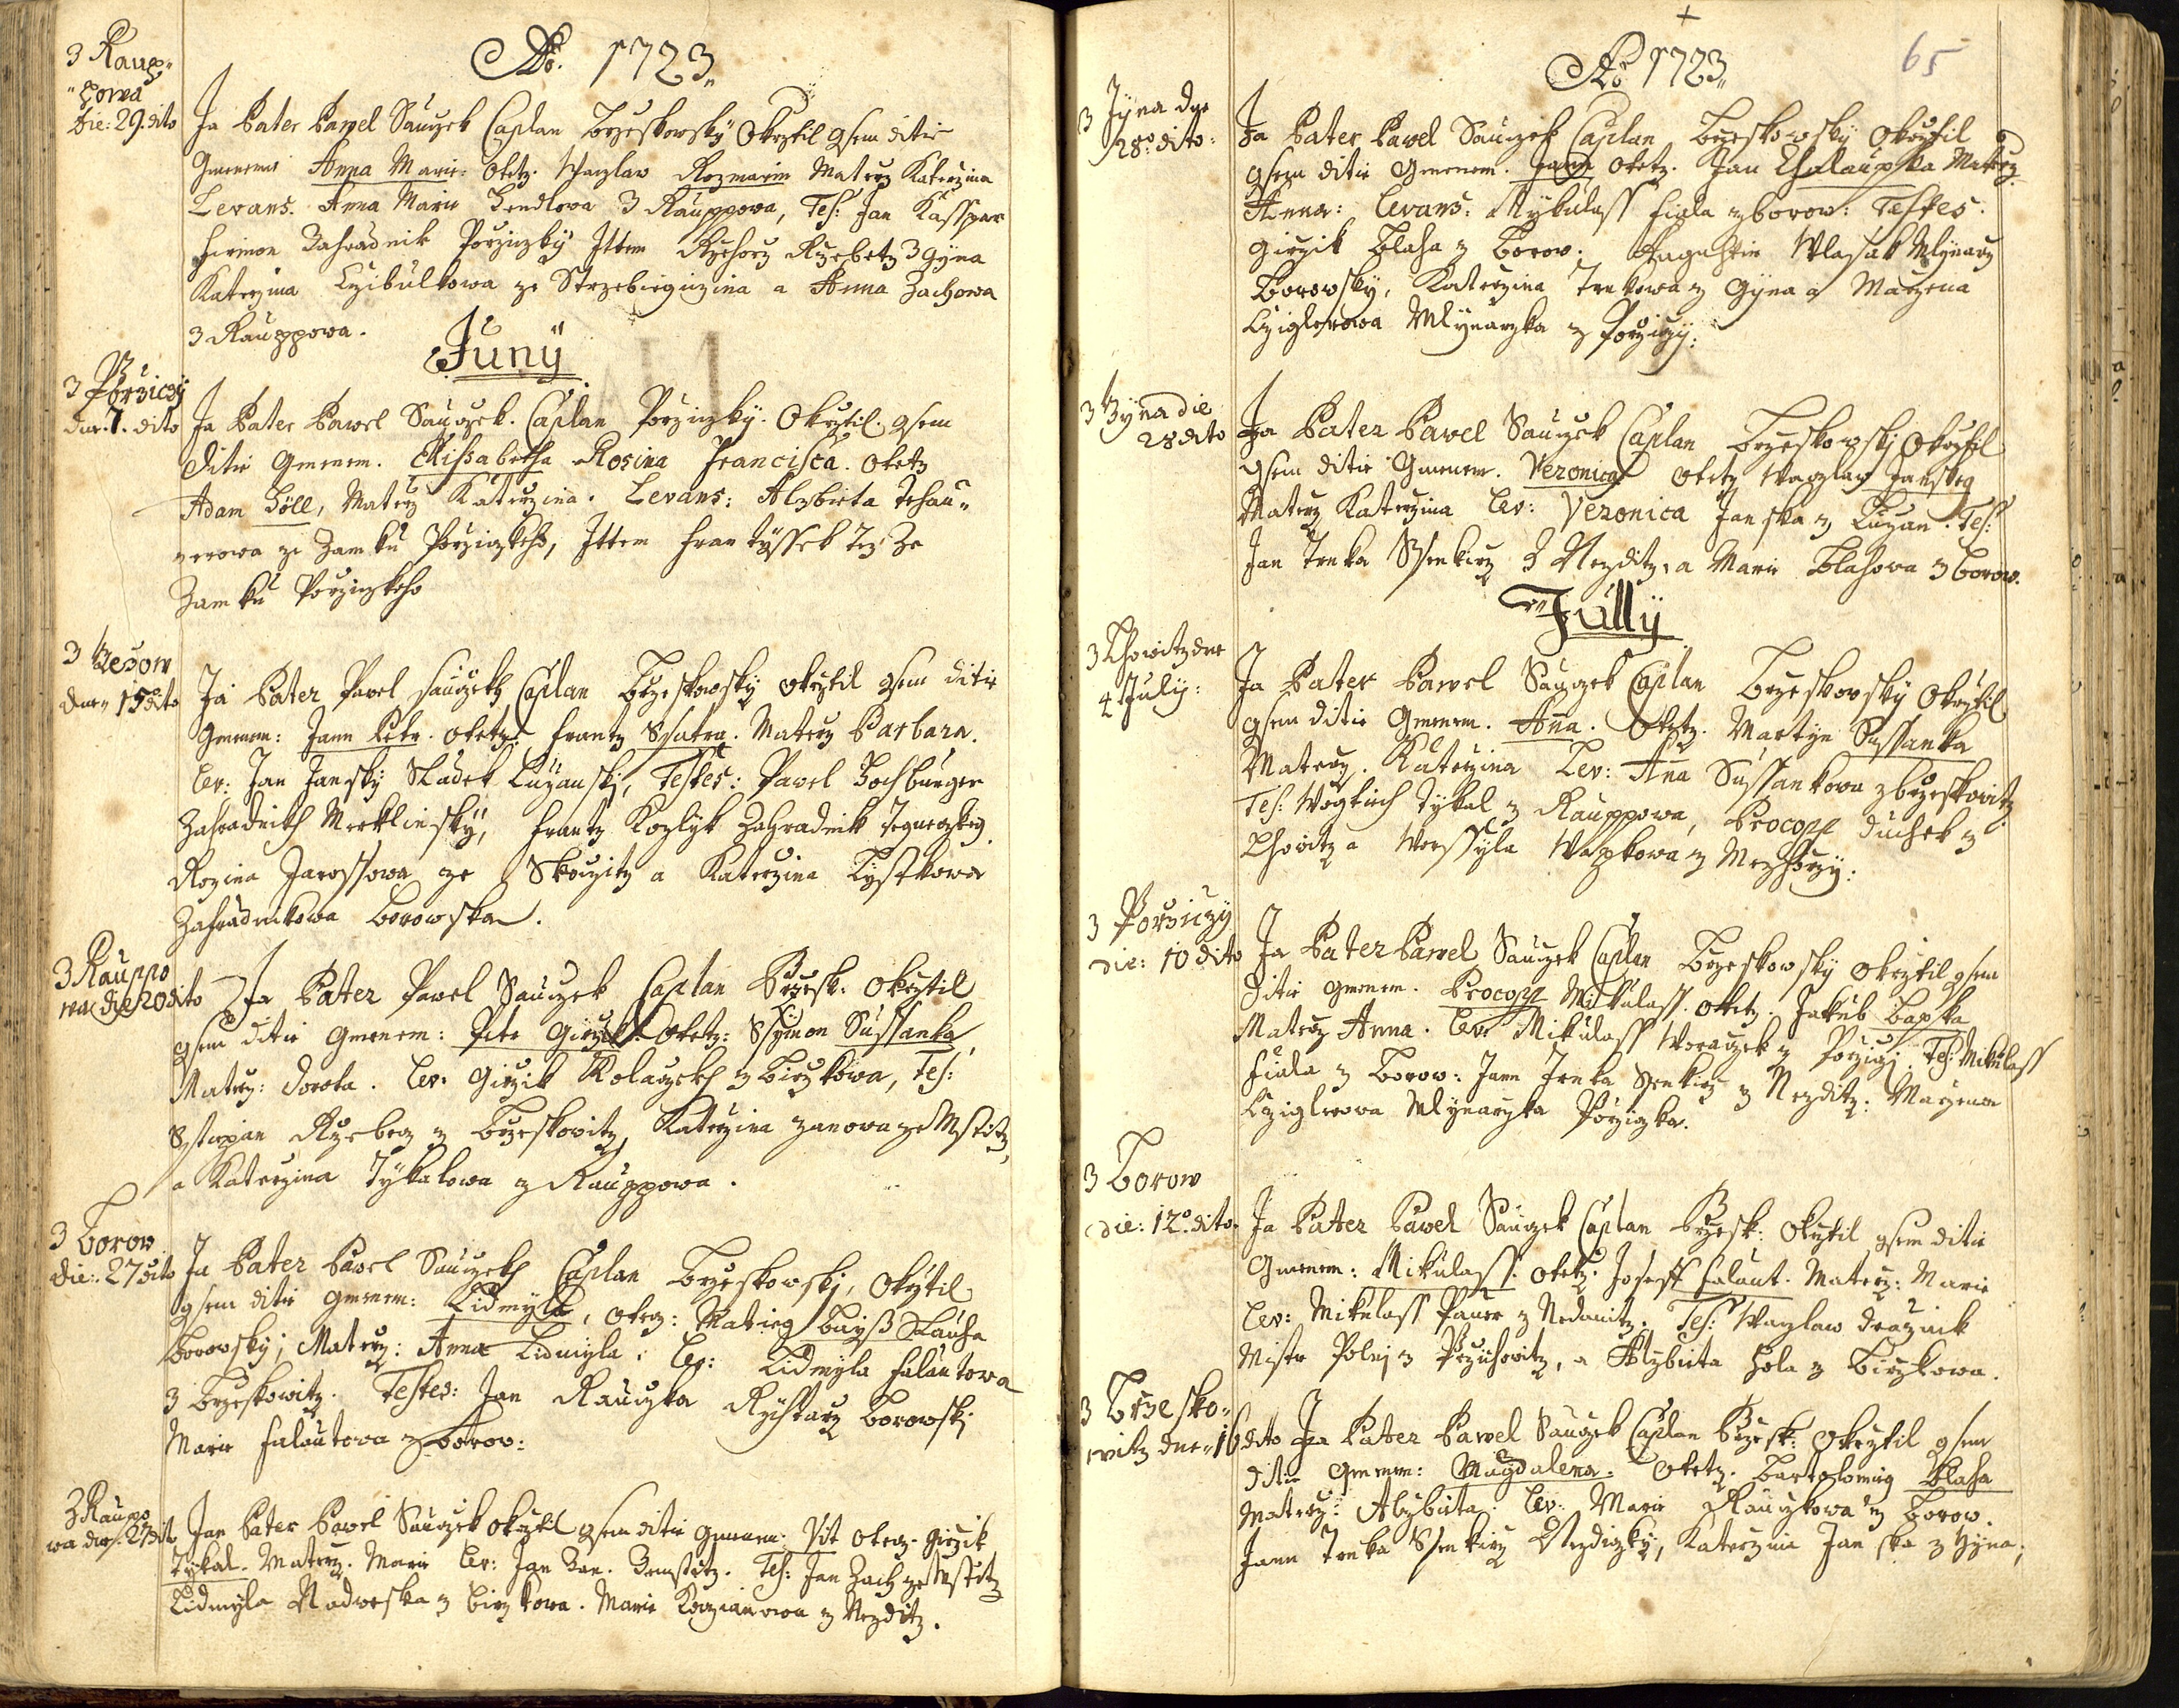 Ao. 1723.
3 Raup-
powa
Die: 29. dito
Ja Pater Pawel Sauczek Caplan Brzeskowsky Okrztil gsem ditie
Gmenem Anna Marie: Otetz. Waczlaw Rozmarin Materz Katerzina
Levans. Anna Marie Hendlowa 3 Rauppowa, Tes: Jan Kasspar
Zahradnik Porzizky Ittem Rzehorz Rzebetz 3 Gyna
Katerzina Czibulkowa ze Strzebiczina a Anna Zachowa
3 Rauppowa.
Juny
3 Porziczy
Die. 7. dito
Ja Pater Pawel Sauczek. Caplan Porzizky. Okrztil. gsem
Ditie Gmenem. Elissabetha Rosina Francisca. Otetz
Adam Höll, Materz Katerzina. Levans: Alzbieta
ze Zamku Porzizkeho, Ittem Frantyssek Tez Ze
Zamku Porzizkeho
3 Borow
15 dito
Ja Pater Pawel Sauczek Caplan Brzeskowsky okrztil gsem ditie
Gmenem: Jann Petr. otetz: Frantz Ssatra. Materz Barbara.
Lev: Jan Jansky Sladek Luzansky, Testes: Pawel Hochburger
Zahradnik Merklinsky, Frantz Kozlyk Zahradnik
Rozina Jarossowa ze Skoczitz a Katerzina Lystkowa
Zahradnikowa Borowska.
3 Rauppo
wa die 20 dito
Ja Pater Pawel Sauczek Caplan Brzesk: Okrztil
gsem ditie Gmenem: Petr Girzik. Otetz: Ssymon Sussanka
Materz: Dorota. Lev: Girzik Kolaczek 3 Birzkowa, Tes:
Sstiepan Rzebetz z Brzeskowitz, Katerzina zanowa ze Mstitz,
a Katerzina Tykalowa z Rauppowa.
3 Borow
die: 27 dito
Ja Pater Pawel Sauczek Caplan Brzeskowsky, Okrztil
gsem ditie gmenem: Lidmyla, otetz: Matieg Buyss Slauha
Borowsky, Materz: Anna Lidmyla: Lev: Lidmyla Falautowa
3 Brzeskowitz. Testes: Jan Rauczka Rychtarz Borowsky
Marie Falautowa z Borow:
3 Rauppo
wa die 27 dito
Jan Pater Pawel Sauczek okrztil gsem ditie gmenem: Vit otetz. Girzik
Tykal. Materz. Marie Lev: Jan Zan. Zemstitz. Tes: Jan Zach ze Mstitz
Lidmyla Nadwerska z Birzkowa. Marie z Nezditz.
Ao 1723.
65
3 Gyna Die
28o dito:
Ja Pater Pawel Sauczek Caplan Brzeskowsky okrztil
gsem ditie Gmenem. otetz. Jan Chalaupka Materz
Anna: Levans: Mykulass Fiala z borow: Testes.
Girzik Blaha z Borow. Augustin Wlasak Mlynarz
Borowsky, Katerzina Trnkowa z Gyna a Marzena
Cziglerowa Mlynarzka z Porziczy:
3 Gyna die
28 dito
Ja Pater Pawel Sauczek Caplan Brzeskowsky Okrztil
gsem ditie Gmenem. Veronica otetz Waczlaw Janskeg
Materz Katerzina Lev: Veronica Janska z Luzan. Tes:
Jan Trnka Ssenkirz 3 Nezditz, a Marie Blahowa 3 Borow.
Jully
3 Lhowitz die
4 July:
Ja Pater Pawel Sauczek Caplan Brzeskowsky Okrztil
gsem ditie Gmenem. Anna. Otetz. Martyn Sussanka
Materz. Katerzina Lev: Anna Sussankowa z brzeskowitz
Tes: Wogtiech Tykal z Rauppowa, Procopp Duchek z
Lhowitz a Worssyla Waczkowa z Mezyhorzy:
3 Porziczy
die: 10 dito
Ja Pater Pawel Sauczek Caplan Brzeskowsky Okrztil gsem
ditie gmenem. Procopp Mikulass. otetz. Jakub Bapka
Materz Anna. Lev: Mikulass Woraczek z Porziczy. Tes: Mikulass
Fiala z Borow: Jann Trnka Ssenkirz z Nezditz: Marzena
Cziglerowa Mlynarzka Porzizka.
3 Borow
die: 12o dito.
Ja Pater Pawel Sauczek Caplan Brzesk: Okrztil gsem ditie
Gmenem: Mikulass. otetz. Joseff Falaut. Materz: Marie
Lev: Mikulass Pauer z Nedanitz. Tes: Waczlaw Drazník
Mistr Polnj z Przichowitz, a Alzbieta Hola z Birzkowa.
3 Brzesko-
witz die 16 dito
Ja Pater Pawel Sauczek Caplan Brzesk: Okrztil gsem
ditie gmenem: Magdalena: otetz. Bartolomieg Blaha
Materz: Alzbieta: Lev. Marie Rauczkowa z Borow.
Jann Trnka Ssenkirz Nezdizky, Katerzina Janska z Gyna;